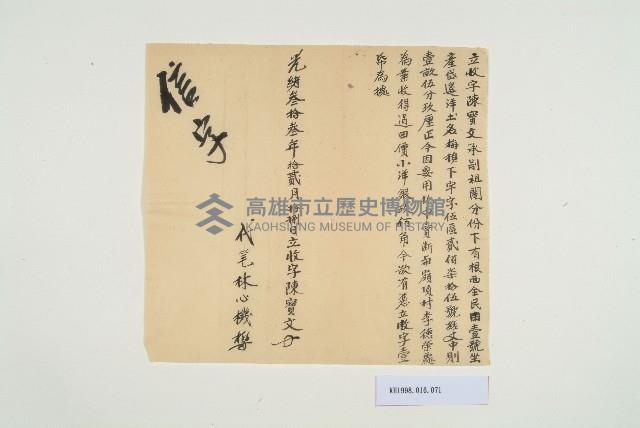 立收字陳寶文承副祖鬮分份下有根面全民田壹號坐
產岱遠洋土名梅樵下字字伍區貳佰柒拾伍號經丈中則
壹畝伍分玖厘正今因要用 賣斷 嶺頂村李德榮處
為業收得過田價小洋銀 佰角今欲有憑立收字壹
帋為據
光緒叁拾叁年拾貳月拾捌日立收字陳寶文
代筆林心機
信字
高雄市立歷史博物館
KAOHSIUNG MUSEUM OF HISTORY
KH1998.016.071